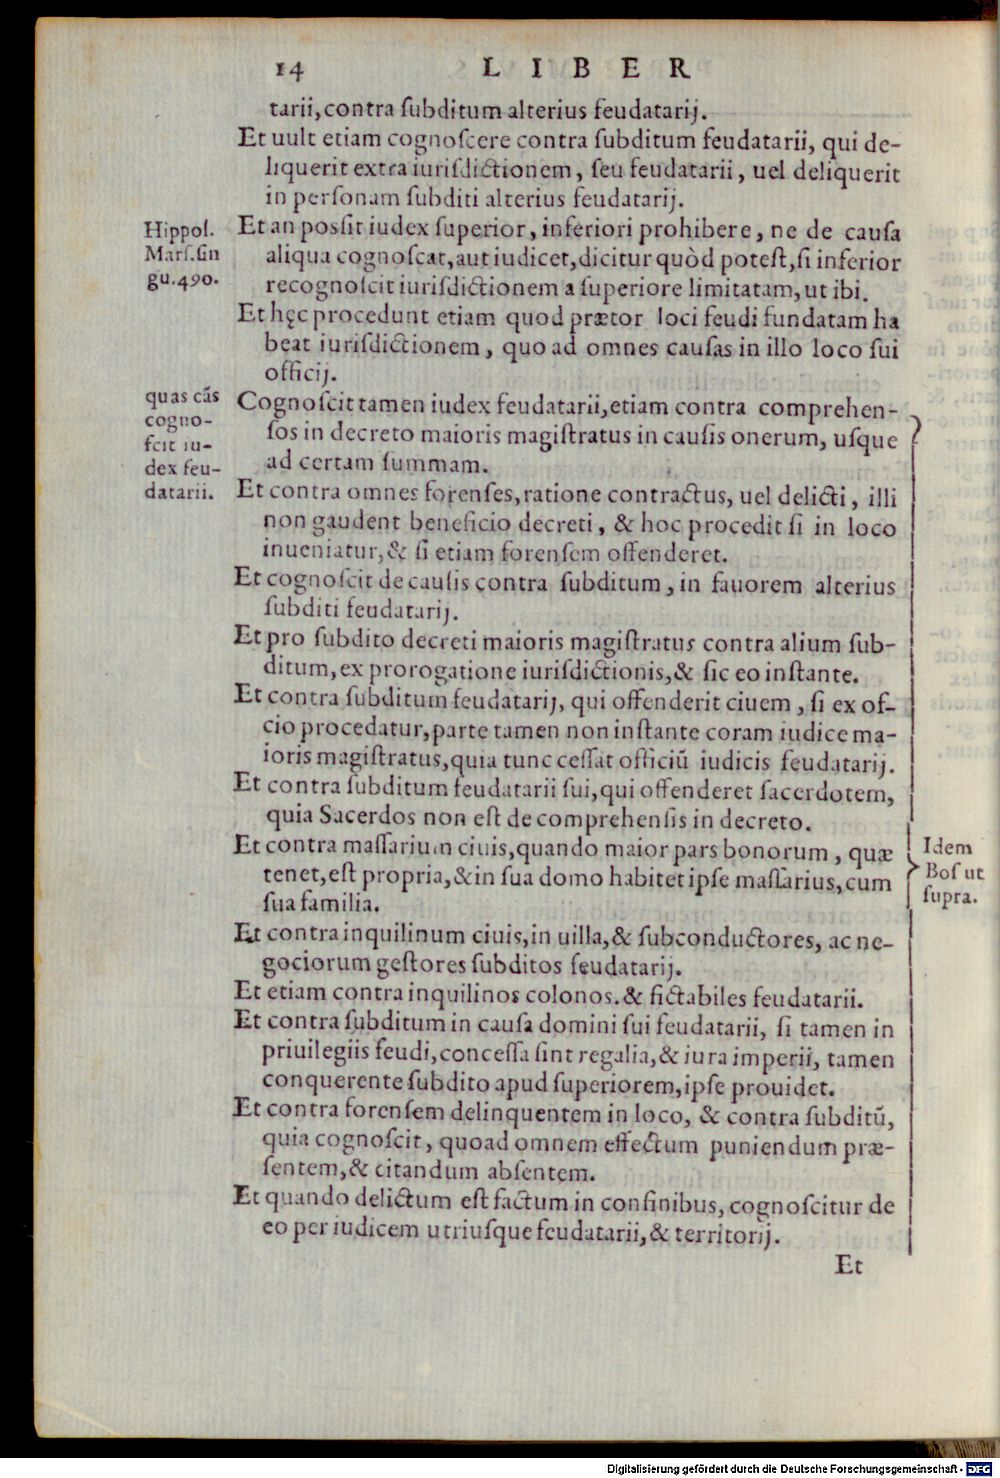 14 LIBER
tarii, contra ſubditum alterius feudatarij.
Et uult etiam cognoſcere contra ſubditum feudatarii, qui de-
liquerit extra iuriſdictionem, ſeu feudatarii, uel deliquerit
in perſonam ſubditi alterius feudatarij.
Hippoſ.
Marſ. ſin
gu. 490.
Et an poſsit iudex ſuperior, inferiori prohibere, ne de cauſa
aliqua cognoſcat, aut iudicet, dicitur quòd poteſt, ſi inferior
recognoſcit iuriſdictionem a ſuperiore limitatam, ut ibi.
Et hęc procedunt etiam quod prætor loci feudi fundatam ha
beat iuriſdictionem, quo ad omnes cauſas in illo loco ſui
officij.
quas cãs
cogno-
ſcit iu-
dex feu-
datarii.
Cognoſcit tamen iudex feudatarii, etiam contra comprehen-
ſos in decreto maioris magiſtratus in cauſis onerum, uſque
ad certam ſummam.
Et contra omnes forenſes, ratione contractus, uel delicti, illi
non gaudent beneficio decreti, & hoc procedit ſi in loco
inueniatur, & ſi etiam forenſem offenderet.
Et cognoſcit de cauſis contra ſubditum, in fauorem alterius
ſubditi feudatarij.
Et pro ſubdito decreti maioris magiſtratus contra alium ſub-
ditum, ex prorogatione iuriſdictionis, & ſic eo inſtante.
Et contra ſubditum feudatarij, qui offenderit ciuem, ſi ex of-
cio procedatur, parte tamen non inſtante coram iudice ma-
ioris magiſtratus, quia tunc ceſſat officiũ iudicis feudatarij.
Et contra ſubditum feudatarii ſui, qui offenderet ſacerdotem,
quia Sacerdos non eſt de comprehenſis in decreto.
Et contra maſſarium ciuis, quando maior pars bonorum, quæ
tenet, eſt propria, & in ſua domo habitet ipſe maſſarius, cum
ſua familia.
Idem
Boſ ut
ſupra.
Et contra inquilinum ciuis, in uilla, & ſubconductores, ac ne-
gociorum geſtores ſubditos feudatarij.
Et etiam contra inquilinos colonos. & fictabiles feudatarii.
Et contra ſubditum in cauſa domini ſui feudatarii, ſi tamen in
priuilegiis feudi, conceſſa ſint regalia, & iura imperii, tamen
conquerente ſubdito apud ſuperiorem, ipſe prouidet.
Et contra forenſem delinquentem in loco, & contra ſubditũ,
quia cognoſcit, quoad omnem effectum puniendum præ-
ſentem, & citandum abſentem.
Et quando delictum eſt factum in confinibus, cognoſcitur de
eo per iudicem utriuſque feudatarii, & territorij.
Et
Digitalisierung gefördert durch die Deutsche Forschungsgemeinschaft - DFG